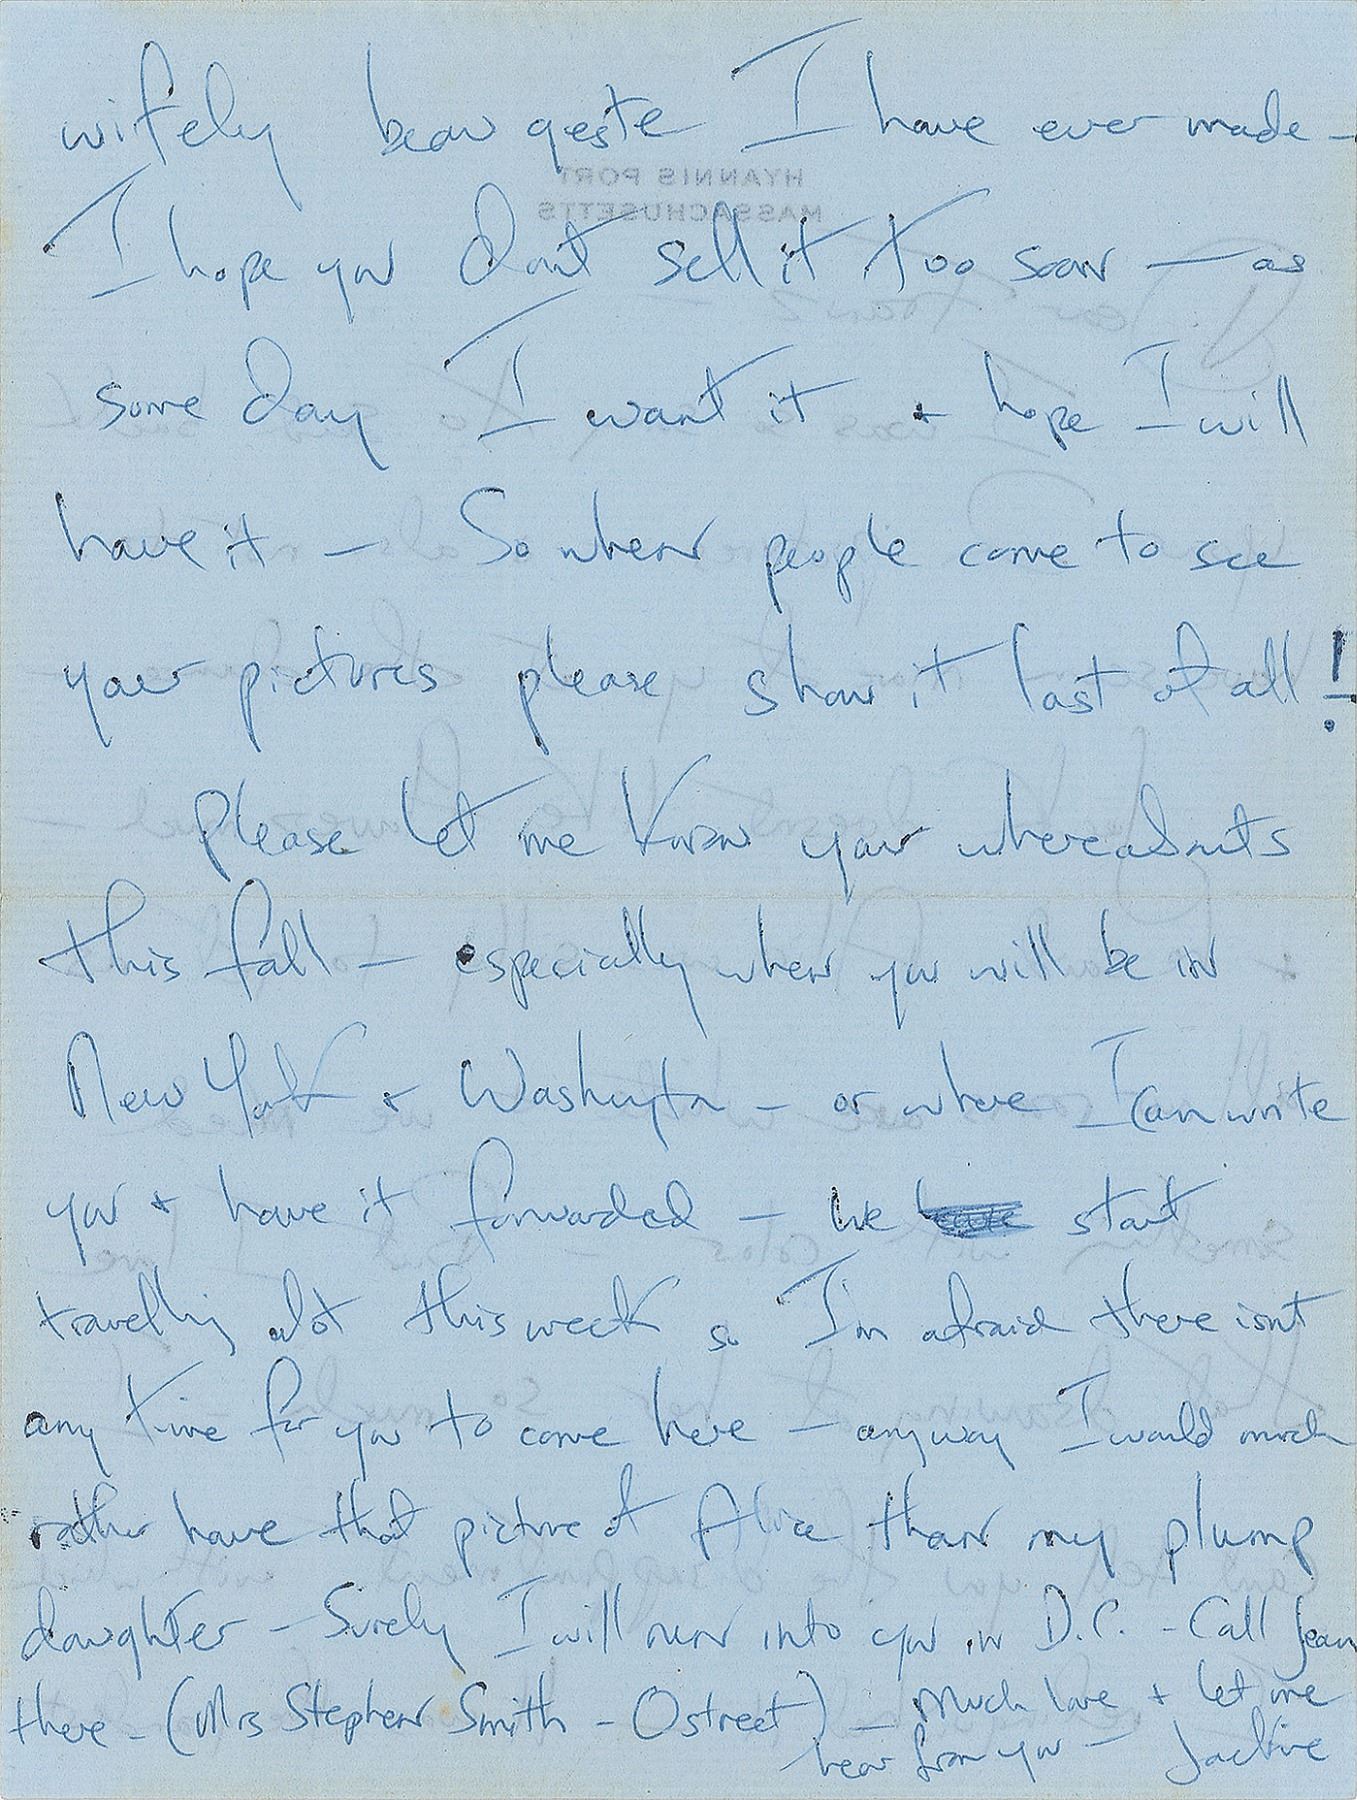 wifely beau geste I have ever made –
HYANNIS PORT
MASSACHUSETTS
I hope you dont sell it too soon — as
some day I want it + hope I will
have it — So when people come to see
your pictures please show it last of all!
please let me know your whereabouts
this fall — especially when you will be in
New York + Washington – or where I can write
you + have it forwarded – We start
travelling alot this week so I'm afraid there isnt
any time for you to come here – anyway I would much
rather have that picture of Alice than my plump
daughter – Surely I will run into you in D.C. - Call Jean
there – (Mrs Stephen Smith – O street) – Much love + let me
hear from you — Jackie